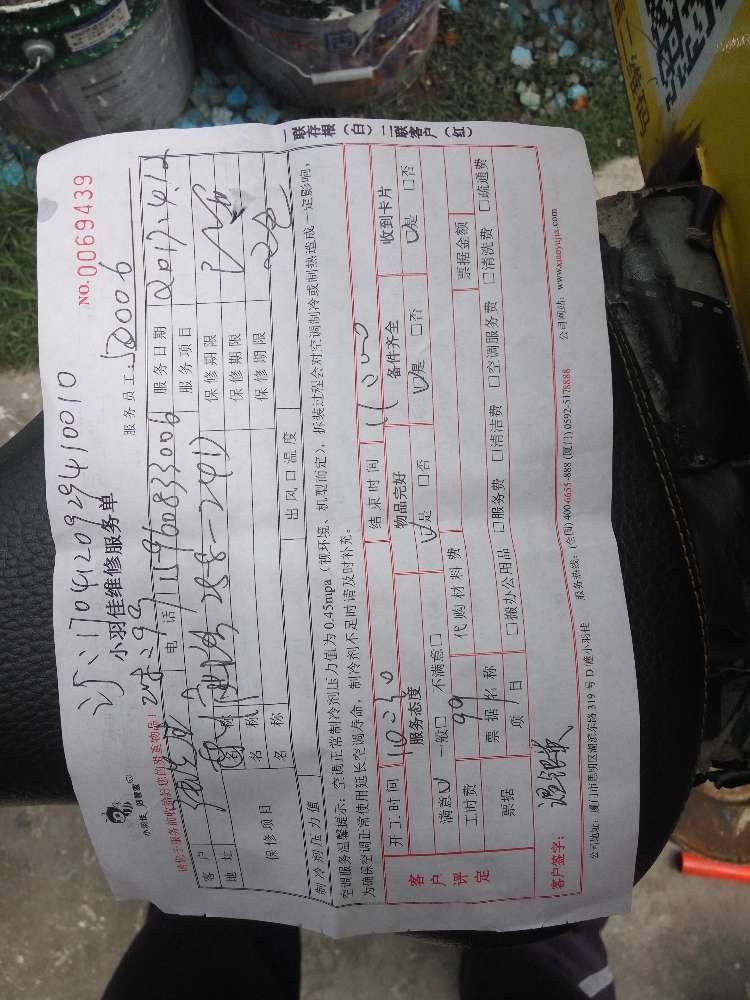 NO.0069439
170412092941001 0
小羽佳维修服务单
小羽佳 好管家
服务员工: 50006
请您于服务前收拾好您的贵重物品!
客户
电话 159600833006
服务日期 2017.4.12
地址
288-2401
服务项目
保修项目
名称
保修期限
名称
保修期限
名称
保修期限
制冷剂压力值
出风口温度
空调服务温馨提示:空调正常制冷剂压力值为0.45mpa(视环境、机型而定),拆装过程会对空调制冷或制热造成一定影响,
为确保空调正常使用延长空调寿命,制冷剂不足时请及时补充。
客户评定
开工时间 10:30
结束时间 11:00
服务态度
物品完好
备件齐全
收到卡片
满意☑ 一般□ 不满意□
☑是 □否
☑是 □否
☑是 □否
工时费 99
代购材料费
票据
票据名称
票据金额
项目
□搬办公用品 □服务费 □清洁费 □空调服务费 □清洗费 □疏通费
客户签字:
公司地址:厦门市思明区湖滨东路319号D座小羽佳 服务热线:(全国)400-6655-888(厦门)0592-5178888 公司网站:www.xiaoyujia.com
一联存根(白)二联客户(红)
二维码